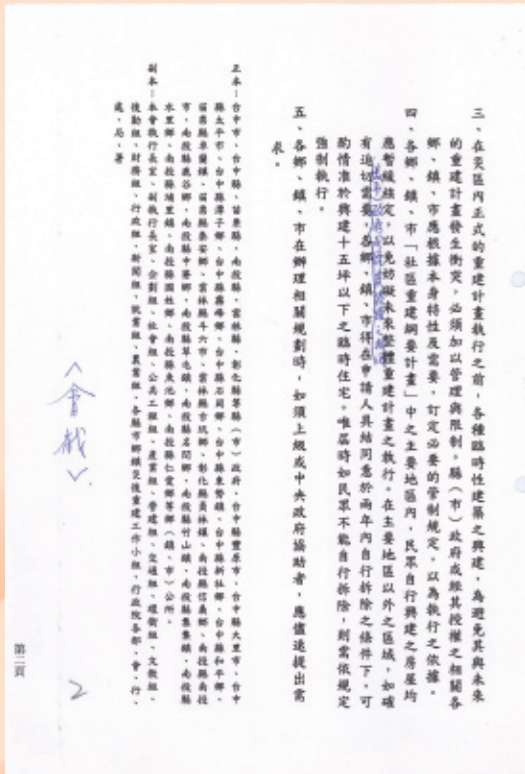 三、在災區內正式的重建計畫執行之前，各種臨時性建築之興建，為避免其與未來
的重建計畫發生衝突，必須加以管理與限制。縣（市）政府或經其授權之相關各
鄉、鎮、市應根據本身特性及需要，訂定必要的管制規定，以為執行之依據。
四、各鄉、鎮、市「社區重建綱要計畫」中之主要地區內，民眾自行興建之房屋均
應暫緩核定，以免妨礙未來整體重建計畫之執行。在主要地區以外之區域，如確
有迫切需要，各鄉、鎮、市得在申請人具結同意於兩年內自行拆除之條件下，可
酌情准於興建十五坪以下之臨時住宅。唯屆時如民眾不能自行拆除，則當依規定
強制執行。
五、各鄉、鎮、市在辦理相關規劃時，如須上級或中央政府協助者，應儘速提出需
求。
正本：台中市、台中縣、苗栗縣、南投縣、雲林縣、彰化縣等縣（市）政府、台中縣豐原市、台中縣大里市、台中
縣太平市、台中縣潭子鄉、台中縣霧峰鄉、台中縣石岡鄉、台中縣東勢鎮、台中縣新社鄉、台中縣和平鄉、
苗栗縣卓蘭鎮、苗栗縣泰安鄉、雲林縣斗六市、雲林縣古坑鄉、彰化縣員林鎮、南投縣信義鄉、南投縣南投
市、南投縣鹿谷鄉、南投縣中寮鄉、南投縣草屯鎮、南投縣名間鄉、南投縣竹山鎮、南投縣集集鎮、南投縣
水里鄉、南投縣埔里鎮、南投縣國姓鄉、南投縣魚池鄉、南投縣仁愛鄉等鄉（鎮、市）公所。
副本：本會執行長室、副執行長室、企劃組、社會組、公共工程組、產業組、營建組、交通組、環衛組、文教組、
後勤組、財務組、行政組、新聞組、就業組、農業組、各縣市鄉鎮災後重建工作小組、行政院各部、會、行、
處、局、署
第二頁
2